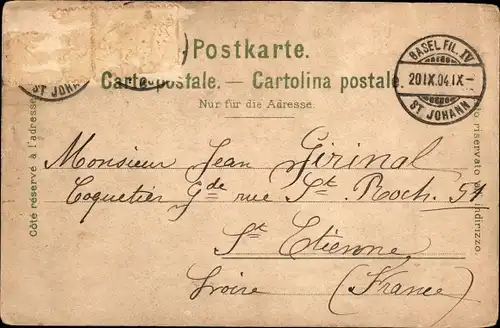 Postkarte.
Carte postale. — Cartolina postale.
Nur für die Adresse.
BASEL FIL. IV
20 IX. 04. IX -
ST JOHANN
ST JOHANN
Côté réservé à l'adresse
riservato indirizzo.
Monsieur Jean Girinal
Coquetier Gde rue St. Roch. 54
St Etienne,
Loire (France)